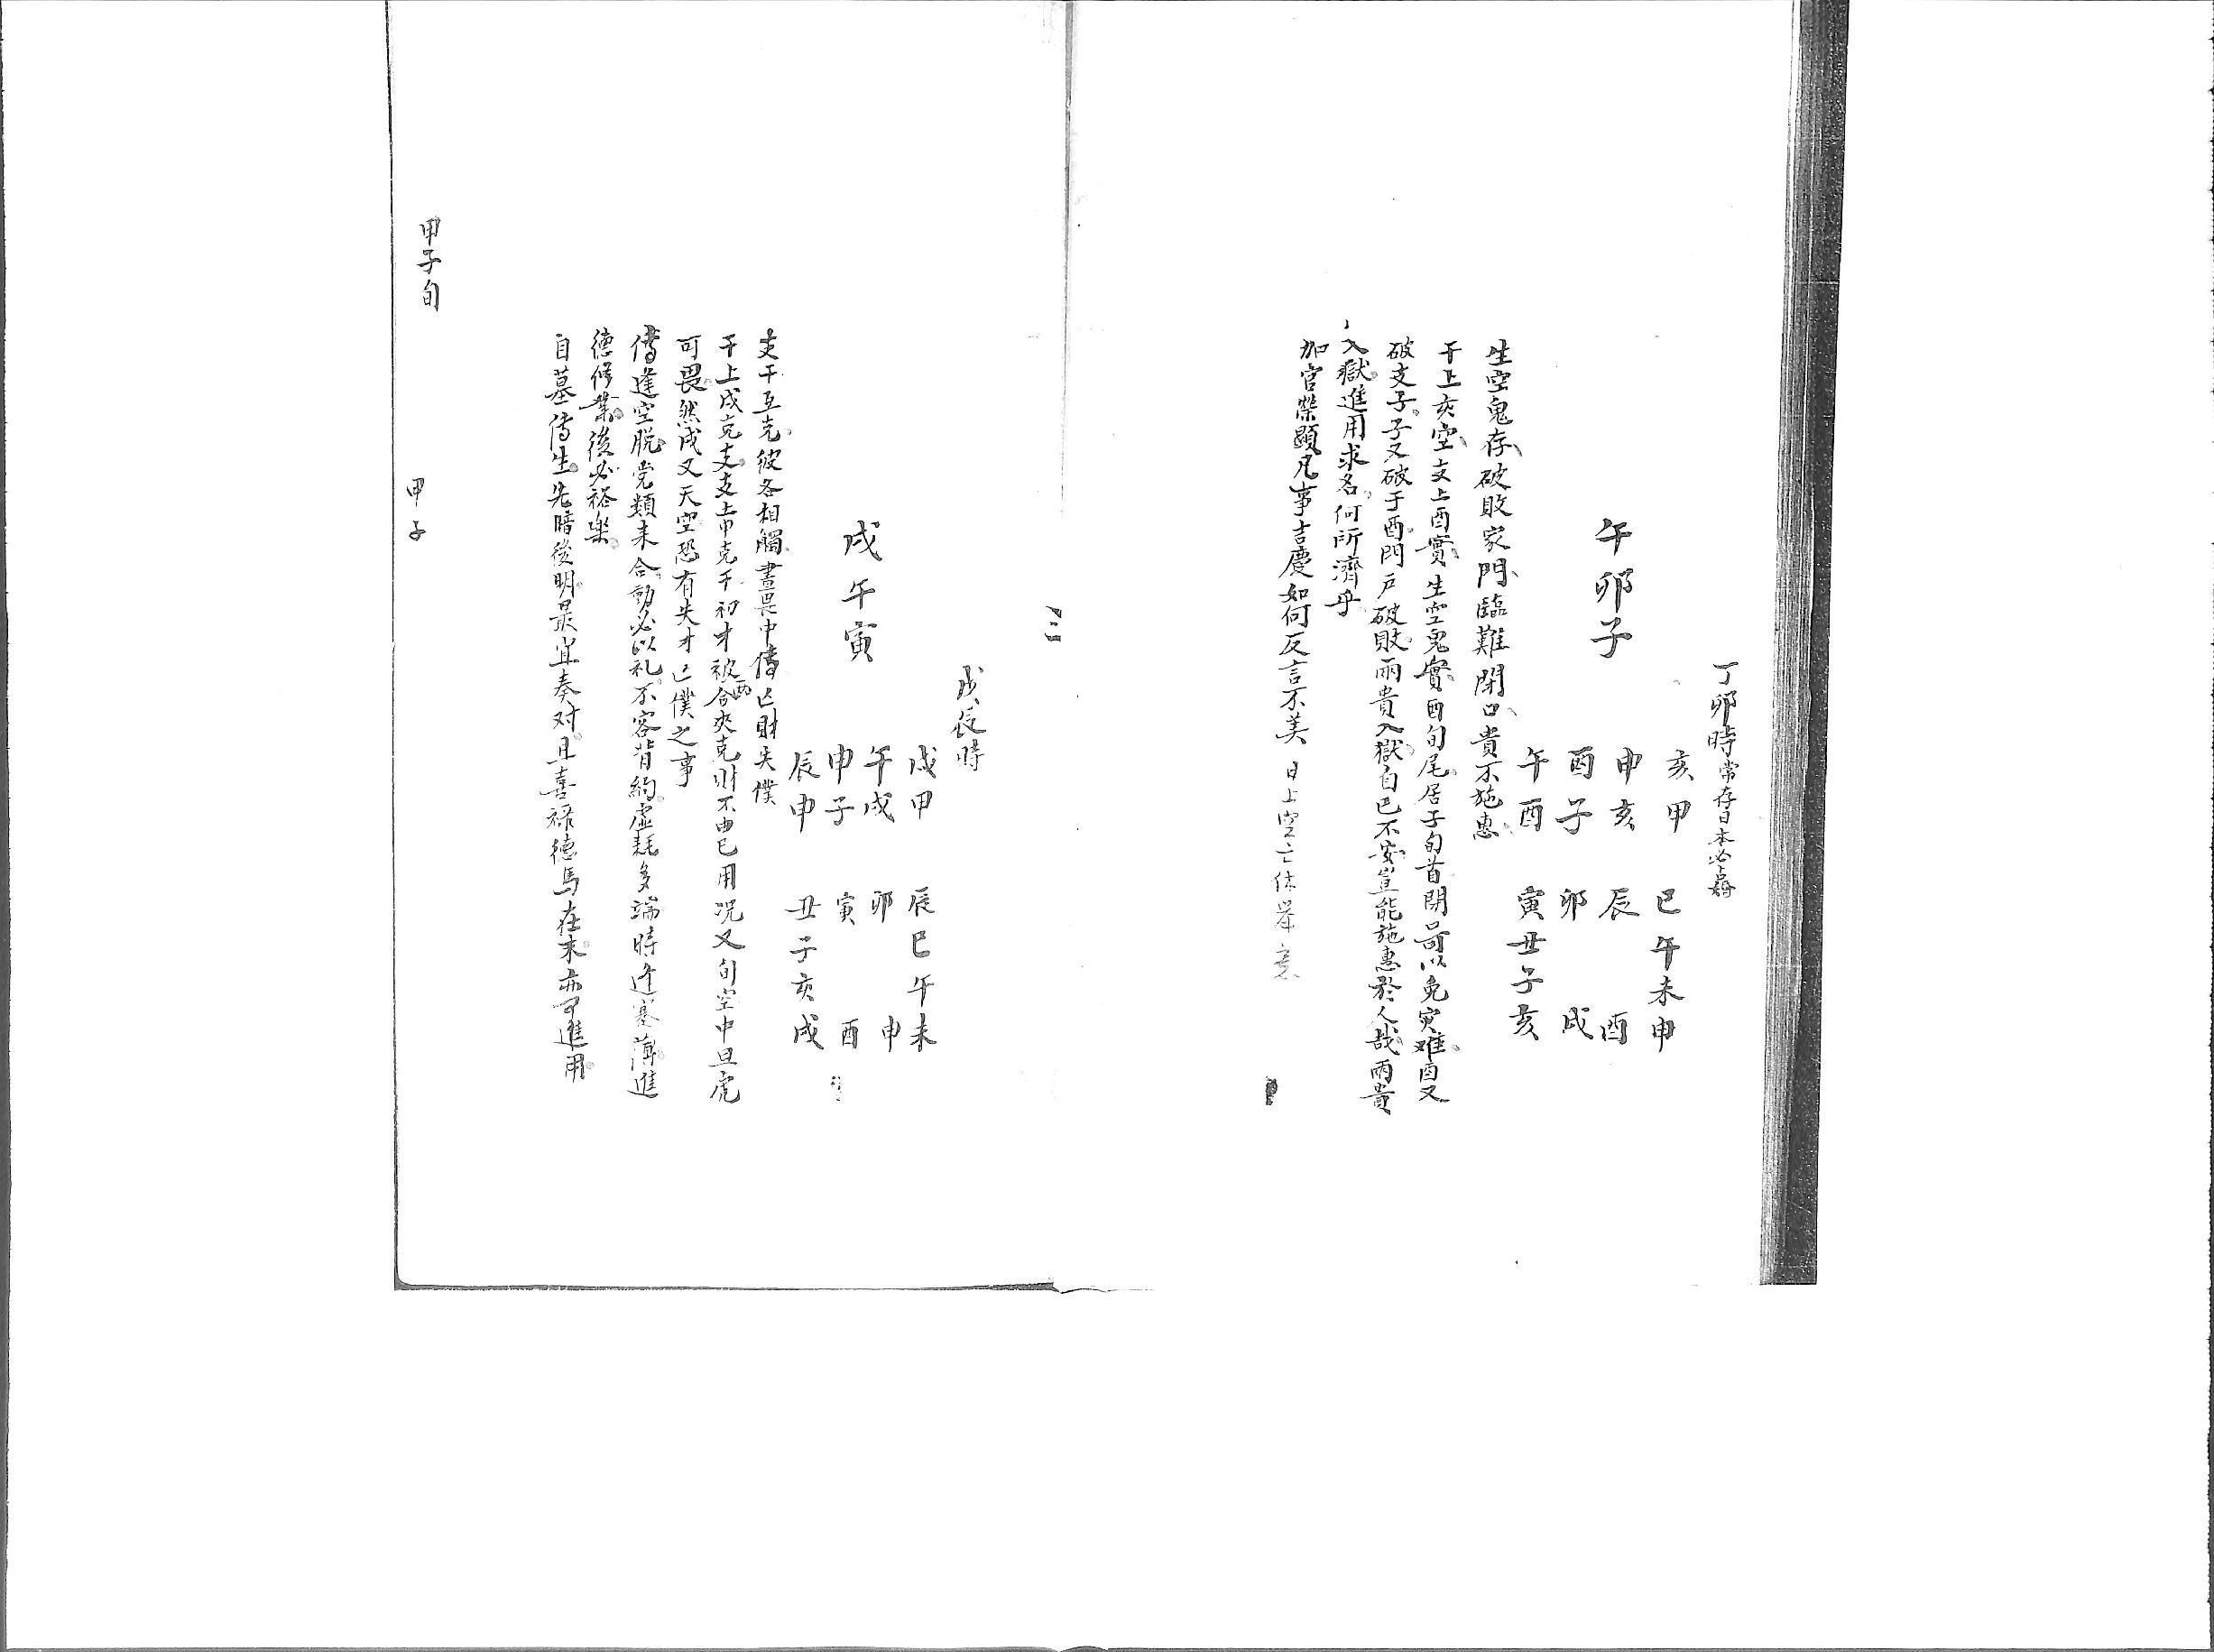 丁卯時常存日本必尋
午卯子
亥甲　巳午未申
申亥　辰　酉
酉子　卯　戌
午酉　寅丑子亥
生空鬼存破敗家門臨難閉口貴不施惠
干上亥空支上酉實生空鬼實酉旬尾居子旬首閉口可以免灾难酉又
破支子子又破于酉門戸破敗兩貴入獄自己不安豈能施惠於人哉兩貴
入獄進用求名何所濟乎
加官榮顯凡事吉慶如何反言不美　日上空亡休举意
戊辰時
戌午寅
戌甲　辰巳午未
午戌　卯　申
申子　寅　酉
辰申　丑子亥戌
支干互克彼各相觸晝畏中傳亡財失僕
干上戌克支支上申克干初才被兩合夾克財不由已用况又旬空中旦虎
可畏然戌又天空恐有失才亡僕之事
傳逢空脱党類来合動必以礼不容背約虛耗多端時逢蹇薄進
德修業後必裕楽
自墓傳生先暗後明最宜奏对且喜禄德馬在末亦可進用
甲子旬
甲子